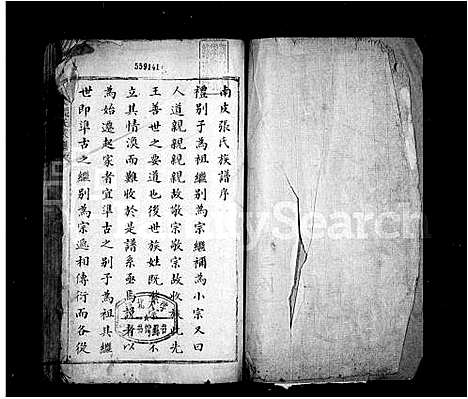 559141
南皮張氏族譜序
禮別子為祖繼別為宗繼禰為小宗又曰
人道親親親親故敬宗敬宗故收族此先
王善世之要道也後世族姓既繁宗不
立其情渙而難收於是譜系亟焉說者以
為始遷起家者宜準古之別子為祖其繼
世即準古之繼別為宗遞相傳衍而各從
FamilySearch